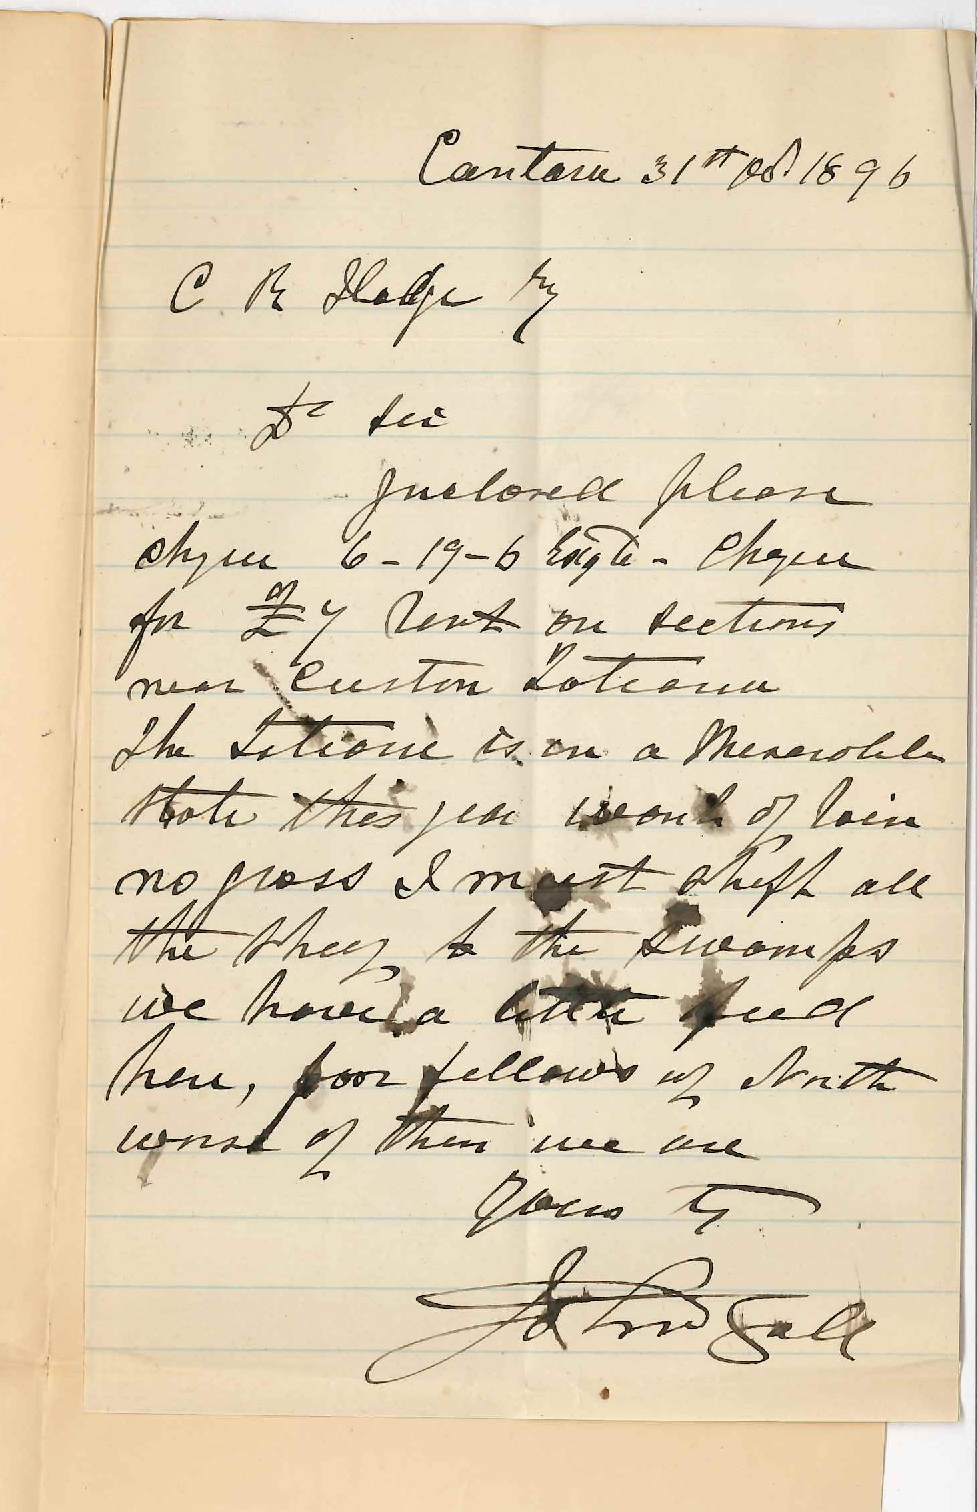 Cantara 31st Oct 1896
C R Hodge Esq
Dr Sir
Inclosed please
cheque 6-19-6 - Cheque
for £7 Rent on sections
near Custon Tatiara
The Tatiara is on a Miserable
state this year want of Rain
no grass I must shift all
the sheep to the Swamps
we have a little feed
here, poor fellows up North
worse of then we are
Yours ty
Gall